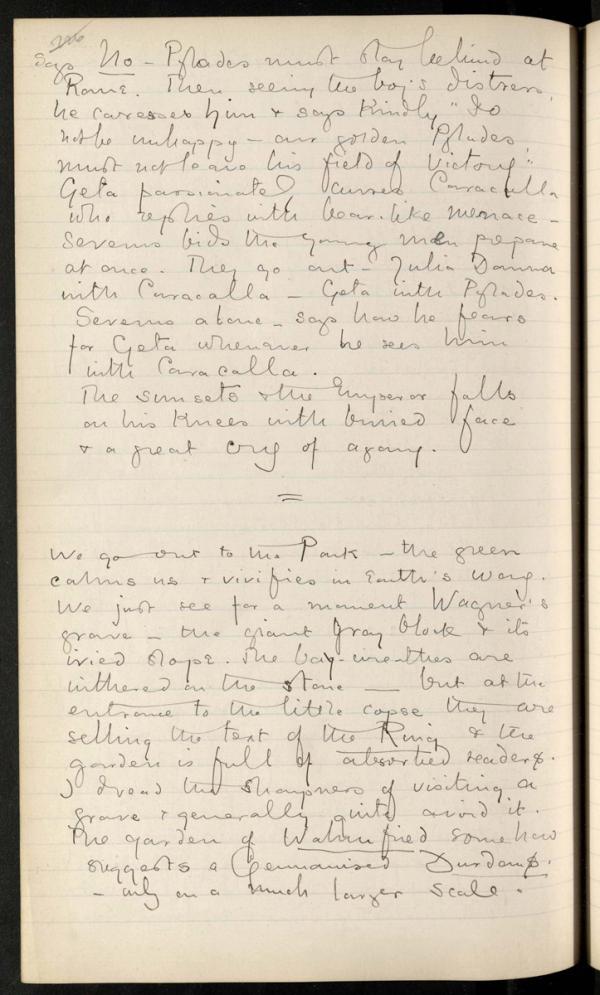 says No – Pylades must stay behind at
Rome. Then seeing the boy's distress,
he caresses him & says kindly "Do
not be unhappy – our golden Pylades
must not leave his field of Victory".
Geta passionately curses Caracalla
who replies with bear-like menace –
Severus bids the young men prepare
at once. They go out – Julia Domna
with Caracalla – Geta with Pylades.
Severus alone – says how he fears
for Geta whenever he sees him
with Caracalla.
The sun sets & the Emperor falls
on his knees with buried face
& a great cry of agony.
=
We go out to the Park – the green
calms us & vivifies in Earth's way.
We just see for a moment Wagner's
grave – the giant gray block & its
ivied slope. The bay-wreathes are
withered on the stone — but at the
entrance to the little copse they are
selling the text of the Ring & the
garden is full of absorbed readers.
I dread the sharpness of visiting a
grave & generally quite avoid it.
The garden of Wahnfried somehow
suggests a Germanised Durdans.
– only on a much larger scale.